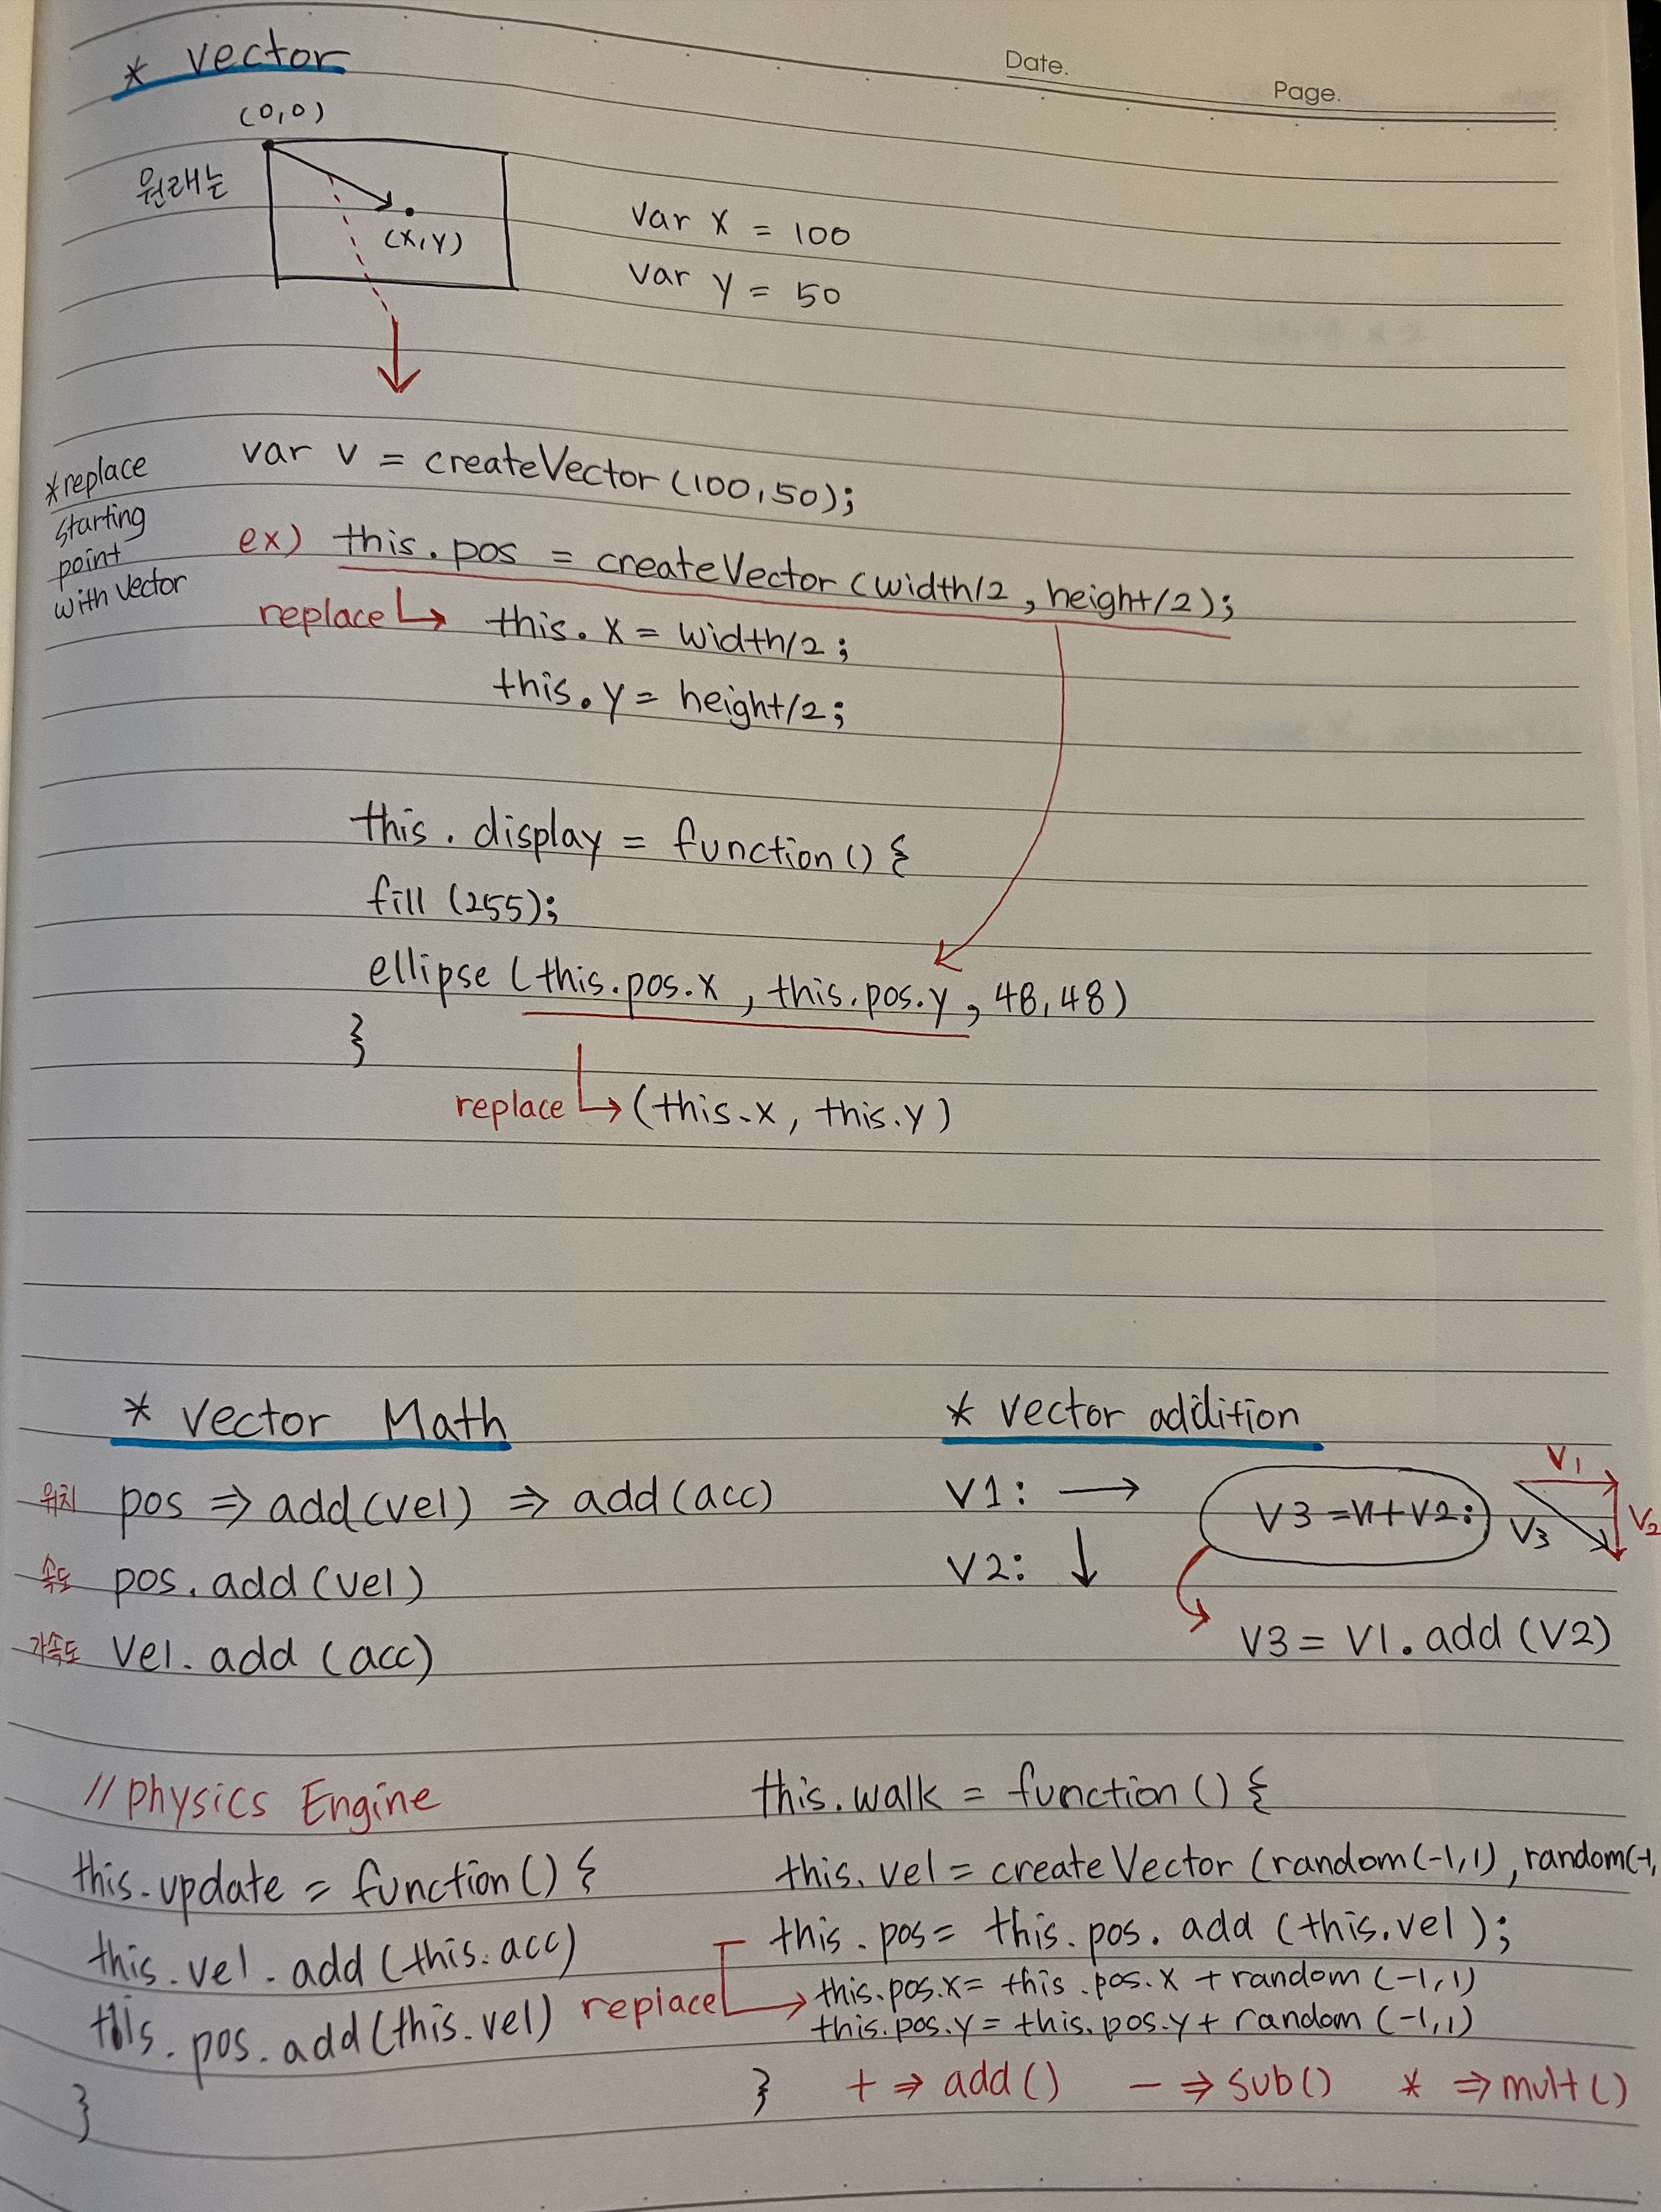 * vector
Date.
Page.
(0,0)
원래는
(x,y)
var x = 100
var y = 50
var v = createVector (100,50);
*replace
starting
point
with vector
ex) this.pos = createVector (width/2, height/2);
replace → this.x = width/2;
this.y = height/2;
this.display = function() {
fill (255);
ellipse (this.pos.x, this.pos.y, 48,48)
}
replace → (this.x, this.y)
* vector Math
위치 pos ⇒ add(vel) ⇒ add(acc)
속도 pos.add(vel)
가속도 vel.add(acc)
* vector addition
V1: →
V2: ↓
V3 = V1+V2;
V1
V2
V3
V3 = V1.add(V2)
//Physics Engine
this.update = function() {
this.vel.add(this.acc)
this.pos.add(this.vel)
}
this.walk = function() {
this.vel = createVector (random(-1,1), random(-1,
this.pos = this.pos.add (this.vel);
replace → this.pos.x = this.pos.x + random (-1,1)
this.pos.y = this.pos.y + random (-1,1)
} + ⇒ add() - ⇒ sub() * ⇒ mult()